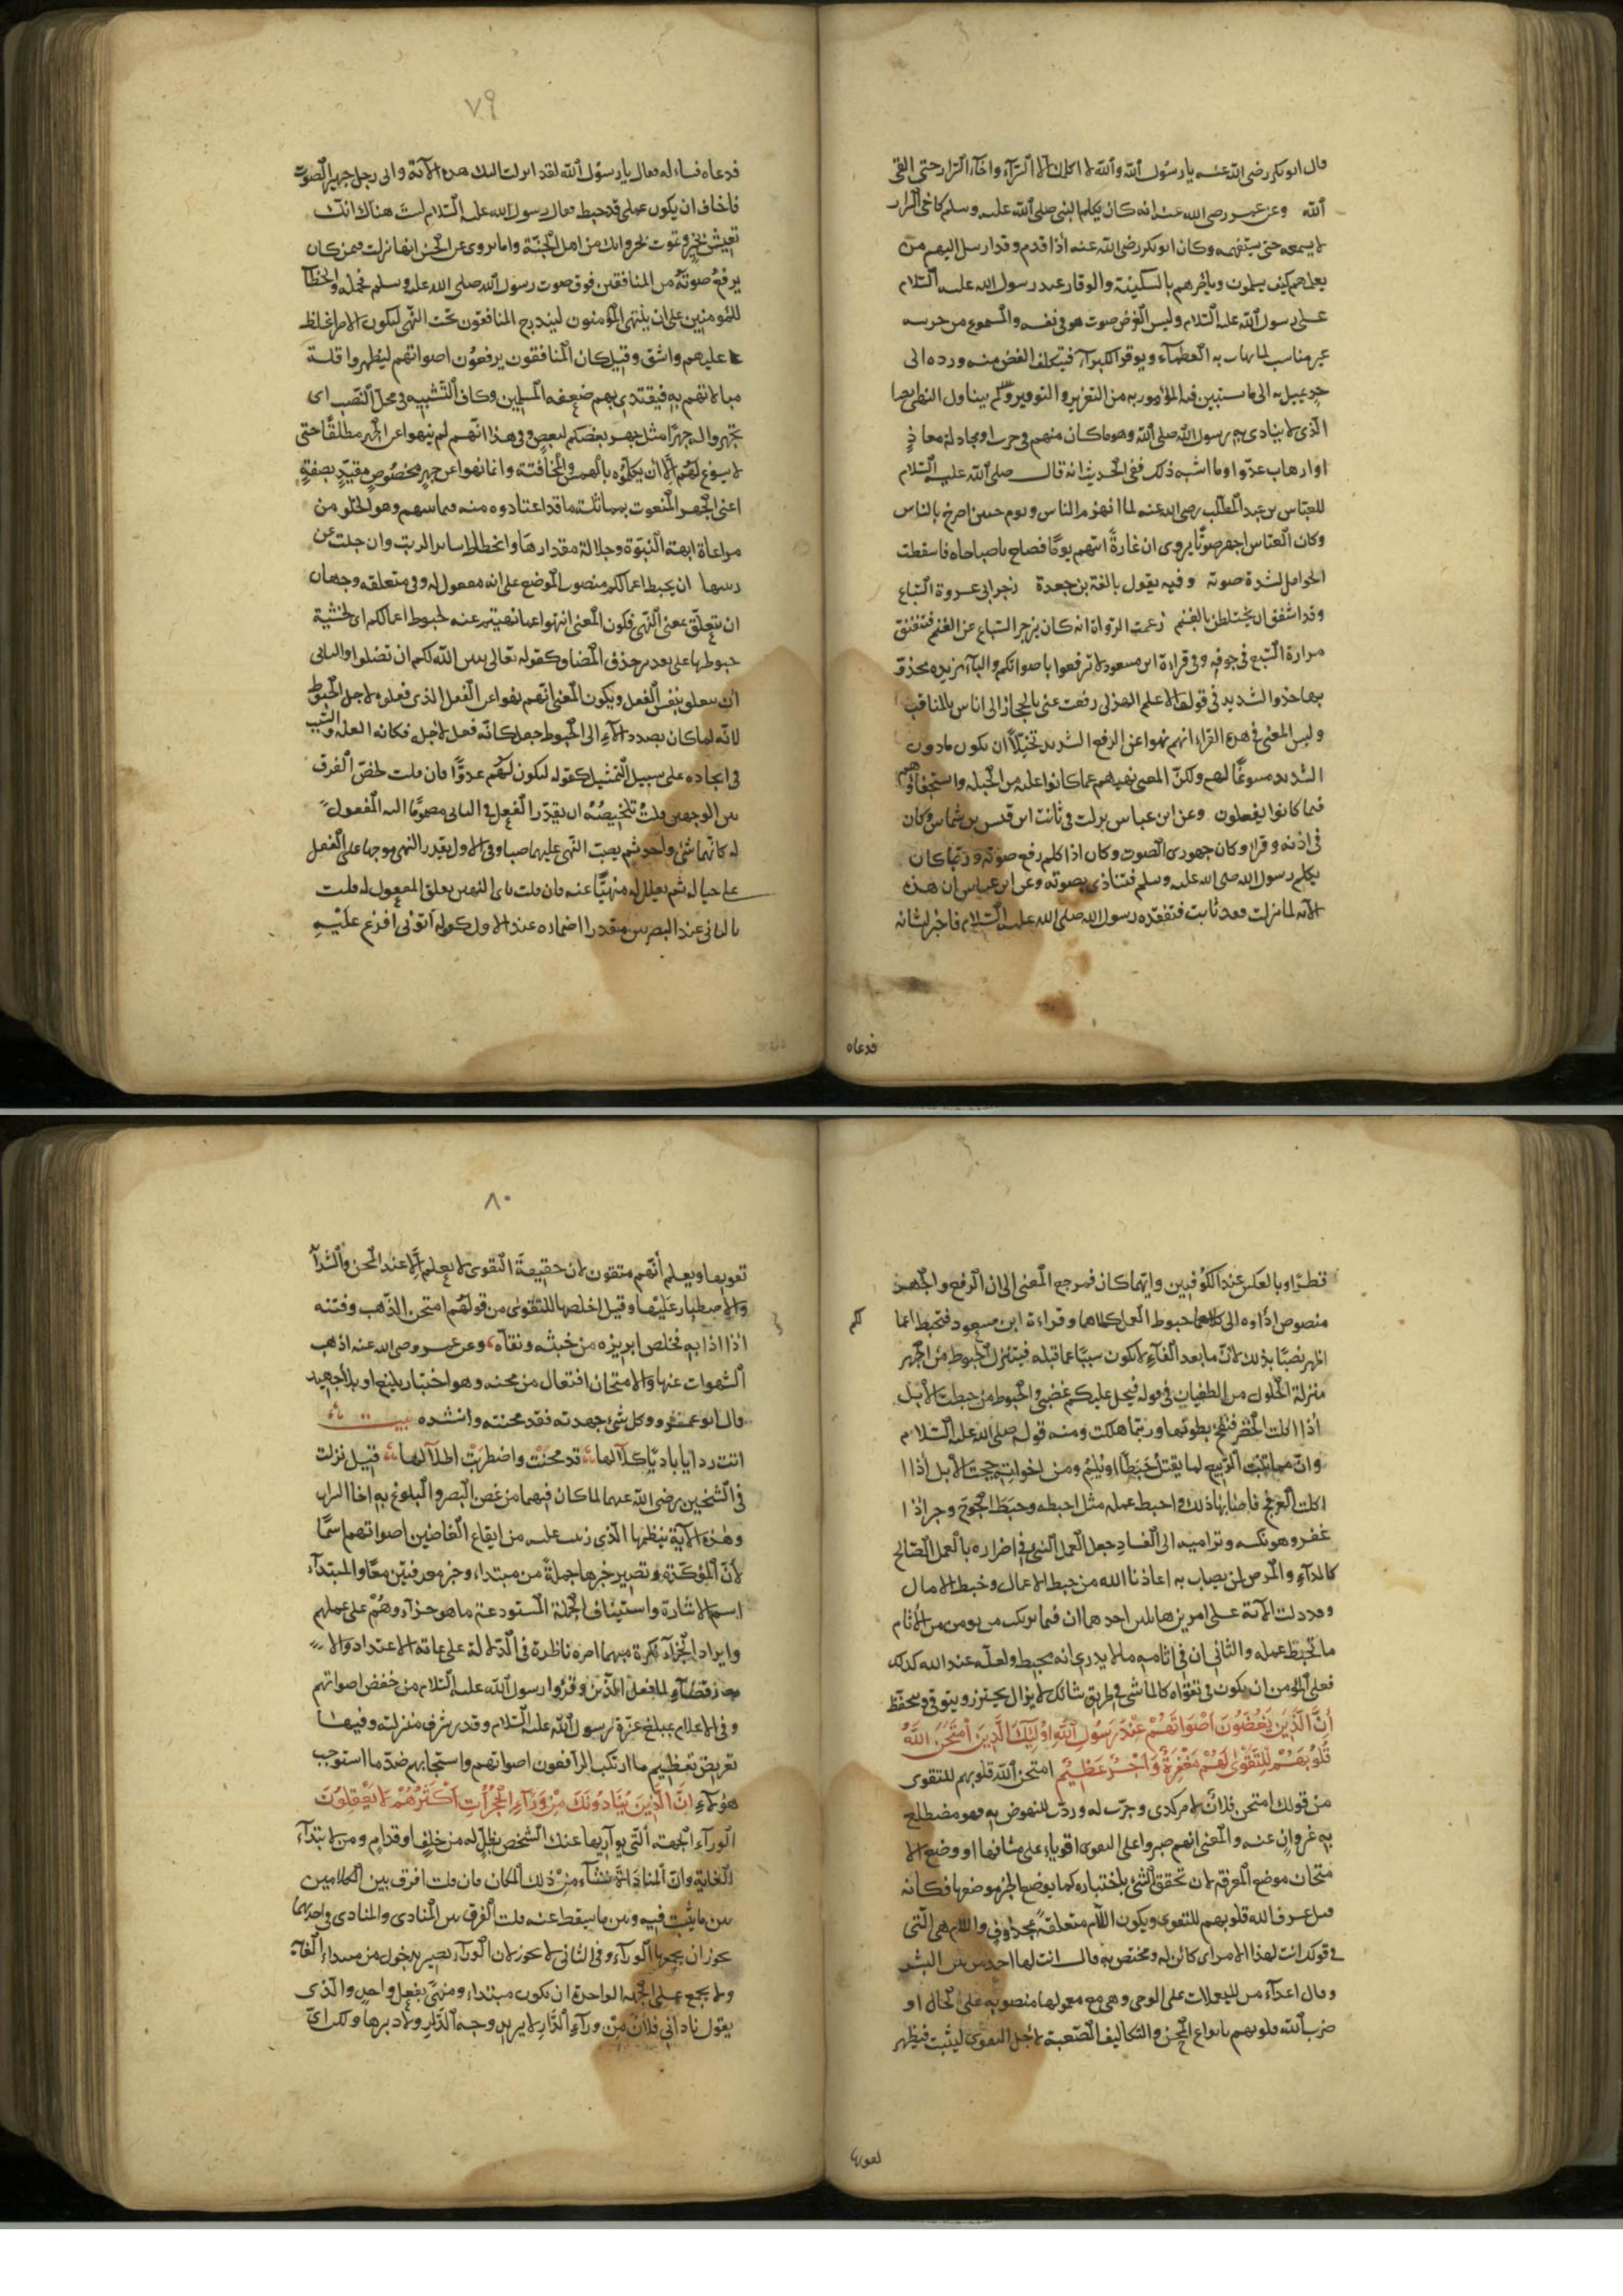 قال ابو بكر رضى الله عنه يا رسول الله والله لا اكلمك الا السرار واخا السرار حتى القى
الله وعن عمر رضى الله عنه انه كان يكلم النبى صلى الله عليه وسلم كاخى السرار
لا يسمعه حتى يستفهمه وكان ابو بكر رضى الله عنه اذا قدم وفد ارسل اليهم من
يعلمهم كيف يسلمون ويأمرهم بالسكينة والوقار عند رسول الله عليه السلام
على رسول الله عليه السلام وليس الغرض صوت هو فى نفسه والمسموع من جرسه
غير مناسب لما يهاب به العظماء ويوقر الكبراء فيتكلف الغض منه ورده الى
حد يميل به الى ما يستبين فيه المأمور به من التعزير والتوقير ولم يتناول النهى ايضا
الذى لا ينادى به رسول الله صلى الله وهو ما كان منهم فى حرب او مجادلة معاند
او ارهاب عدو او ما اشبه ذلك ففى الحديث انه قال صلى الله عليه السلام
للعباس بن عبد المطلب رضى الله عنه لما انهزم الناس ويوم حنين اصرخ بالناس
وكان العباس اجهر صوتا يروى ان غارة اتتهم يوما فصاح يا صباحاه فاسقطت
الحوامل لشدة صوته وفيه يقول نابغة بن جعدة زجر ابى عروة السباع
وقد اشفق ان يختلطن بالغنم زعمت الرواة انه كان يزجر السباع عن الغنم فتنفتق
مرارة السبع فى جوفه وفى قراءة ابن مسعود لا ترفعوا باصواتكم والباء مزيده محذو
بها حذو التشديد فى قول الاعلم الهذلى رفعت عينى بالحجاز الى اناس بالمناقب
وليس المعنى فى هذه القراءة انهم نهوا عن الرفع الشديد تخيلا ان يكون ما دون
الشديد مسوغا لهم ولكن المعنى نهيهم عما كانوا عليه من الجلبة واستجفاؤهم
فيما كانوا يفعلون وعن ابن عباس نزلت فى ثابت ابن قيس بن شماس وكان
فى اذنه وقر وكان جهورى الصوت وكان اذا كلم رفع صوته وربما كان
يكلم رسول الله صلى الله عليه وسلم فيتاذى بصوته وعن ابن عباس ان هذه
الآية لما نزلت فقد ثابت فتفقده رسول الله صلى الله عليه السلام فاخبر لشانه
فدعاه
٧٩
فدعاه فساءله فقال يا رسول الله لقد انزلت اليك هذه الآية وانى رجل جهير الصوت
فاخاف ان يكون عملى قد حبط فقال رسول الله عليه السلام لست هناك انك
تعيش بخير وتموت بخير وانك من اهل الجنة واما يروى عن الحسن انها نزلت فيمن كان
يرفع صوته من المنافقين فوق صوت رسول الله صلى الله عليه وسلم فمحمله والخطاب
للمؤمنين على ان ينتهى المؤمنون ليندرج المنافقون تحت النهى ليكون الامر اغلظ
عليهم واشق وقيل كان المنافقون يرفعون اصواتهم ليظهروا قلة
مبالاتهم به فيقتدى بهم ضعفه المسلمين وكاف التشبيه فى محل النصب اى
تجهروا له جهرا مثل جهر بعضكم لبعض وفى هذا انهم لم ينهوا عن الجهر مطلقا حتى
لا يسوغ لهم الا ان يكلموه بالهمس والمخافتة وانما نهوا عن جهر مخصوص مقيد بصفة
اعنى الجهر المنعوت بمماثلة ما قد اعتادوه منه فيما بينهم وهو الخلو من
مراعاة ابهة النبوة وجلالة مقدارها وانحطاط ساير الرتب وان جلت عن
رتبها ان يحبط اعمالكم منصوب الموضع على انه مفعول له وفى متعلقه وجهان
ان يتعلق بمعنى النهى فيكون المعنى انتهوا عما نهيتم عنه لحبوط اعمالكم اى لخشية
حبوطها على تقدير حذف المضاف كقوله تعالى يبين الله لكم ان تضلوا والثانى
ان يتعلق بنفس الفعل ويكون المعنى انهم نهوا عن الفعل الذى فعلوه لاجل الحبوط
لانه لما كان بصدد الاداء الى الحبوط جعل كانه فعل لاجله فكانه العلة والسبب
فى ايجاده على سبيل التمثيل كقوله ليكون لهم عدوا فان قلت لخص الفرق
بين الوجهين قلت تلخيصه ان يقدر الفعل فى الثانى مضموما اليه المفعول
له كانهما شئ واحد ثم يصب النهى عليهما صبا وفى الاول يقدر النهى موجها على الفعل
على حياله ثم يعلل له منهيا عنه فان قلت باى النهيين يعلق المفعول له قلت
بالثانى عند البصريين مقدرا اضماره عند الاول كقوله آتونى افرغ عليه
قطرا وبالعكس عند الكوفيين وايهما كان فمرجع المعنى الى ان الرفع والجهر
منصوص اداوه الى حبوط العمل كلاهما وقراءة ابن مسعود فتحبط اعما
لكم
اظهر نصا بذلك لان ما بعد الفاء لا يكون سببا عما قبله فيتنزل الحبوط من الجهر
منزلة الحلول من الطغيان فى قوله فيحل عليكم غضبى والحبوط من حبطت الابل
اذا اكلت الخضر فنفخ بطونها وربما هلكت ومنه قوله صلى الله عليه السلام
وان مما ينبت الربيع لما يقتل حبطا او يلم ومن اخواته حبجت الابل اذا
اكلت العرفج فاصابها ذلك واحبط عمله مثل احبطه وحبط الجرح وحبر اذا
غفر وهو نكسه وتراميه الى الفساد جعل العمل السيئ فى اضراره بالعمل الصالح
كالداء والمرض لمن يصاب به اعاذنا الله من حبط الاعمال وخبط الامال
وقد دلت الآية على امرين هائلين احدهما ان فيما يرتكب من يومن من الآثام
ما يحبط عمله والثانى ان فى آثامه ما لا يدرى انه محبط ولعله عند الله كذلك
فعلى المؤمن ان يكون فى تقواه كالماشى فى طريق شائك لا يزال يحترز ويتوقى ويتحفظ
ان الذين يغضون اصواتهم عند رسول الله اولئك الذين امتحن الله
قلوبهم للتقوى لهم مغفرة واجر عظيم امتحن الله قلوبهم للتقوى
من قولك امتحن فلان لامر كذى وجرب له ودرب للنهوض به فهو مضطلع
به غير وان عنه والمعنى انهم صبروا على التقوى اقوياء على مشاقها او وضع الا
متحان موضع المعرفة لان تحقق الشئ باختباره كما يوضع الخبر موضعها فكانه
قيل عرف الله قلوبهم للتقوى ويكون اللام متعلقة بمحذوف واللام هى التى
فى قولك انت لهذا الامر اى كائن له ومختص به قال انت لها احمد من بين البشر
وقال اعداء من لليعملات على الوجى وهى مع معمولها منصوبة على الحال او
ضرب الله قلوبهم بانواع المحن والتكاليف الصعبة لاجل التقوى ليثبت فيظهر
تقويها
٨٠
تقويها ويعلم انهم متقون لان حقيقة التقوى لا يعلم الا عند المحن والشدا
والاصطبار عليها وقيل اخلصها للتقوى من قولهم امتحن الذهب وفتنه
اذا اذابه فخلص ابريزه من خبثه ونقاه وعن عمر رضى الله عنه اذهب
الشهوات عنها والامتحان افتعال من محنه وهو اختبار بليغ او بلاء جهيد
قال ابو عمرو وكل شئ جهدته فقد محنته وانشده بيت
اتت رذايا باديا كلالها قد محنت واضطربت اطلالها قيل نزلت
فى الشيخين رضى الله عنهما لما كان فيهما من غض البصر والبلوغ به اخا السرار
وهذه الآية بنظمها الذى رتبت عليه من ايقاع الغاضين اصواتهم اسما
لان المؤكدة وتصيير خبرها جملة من مبتداء وخبر معرفتين معا والمبتداء
اسم الاشارة واستيناف الجملة المستودعة ما هو جزاءهم على عملهم
وايراد الجزاء نكرة مبهما امره ناظرة فى الدلالة على غاية الاعتداد والا
رتضاء لما فعل الذين وقروا رسول الله عليه السلام من خفض اصواتهم
وفى الاعلام بمبلغ عزة رسول الله عليه السلام وقدر شرف منزلته وفيها
تعريض بعظيم ما ارتكب الرافعون اصواتهم واستجابهم ضد ما استوجب
هؤلاء ان الذين ينادونك من وراء الحجرات اكثرهم لا يعقلون
الوراء الجهة التى يواريها عنك الشخص بظله من خلف او قدام ومن لابتداء
الغاية وان المناداة نشأء من ذلك المكان فان قلت افرق بين الكلامين
بين ما يثبت فيه وبين ما يسقط عنه قلت الفرق بين المنادى والمنادى فى احدهما
يجوز ان يجمعهما الوراء وفى الثانى لا يجوز لان الوراء تصير بدخول من مبتداء الغاية
ولا يجمع على الجهة الواحدة ان يكون مبتداء ومنتهى بفعل واحد والذى
يقول نادانى فلان من وراء الدار لا يريد وجه الدار ولا دبرها ولكن اى